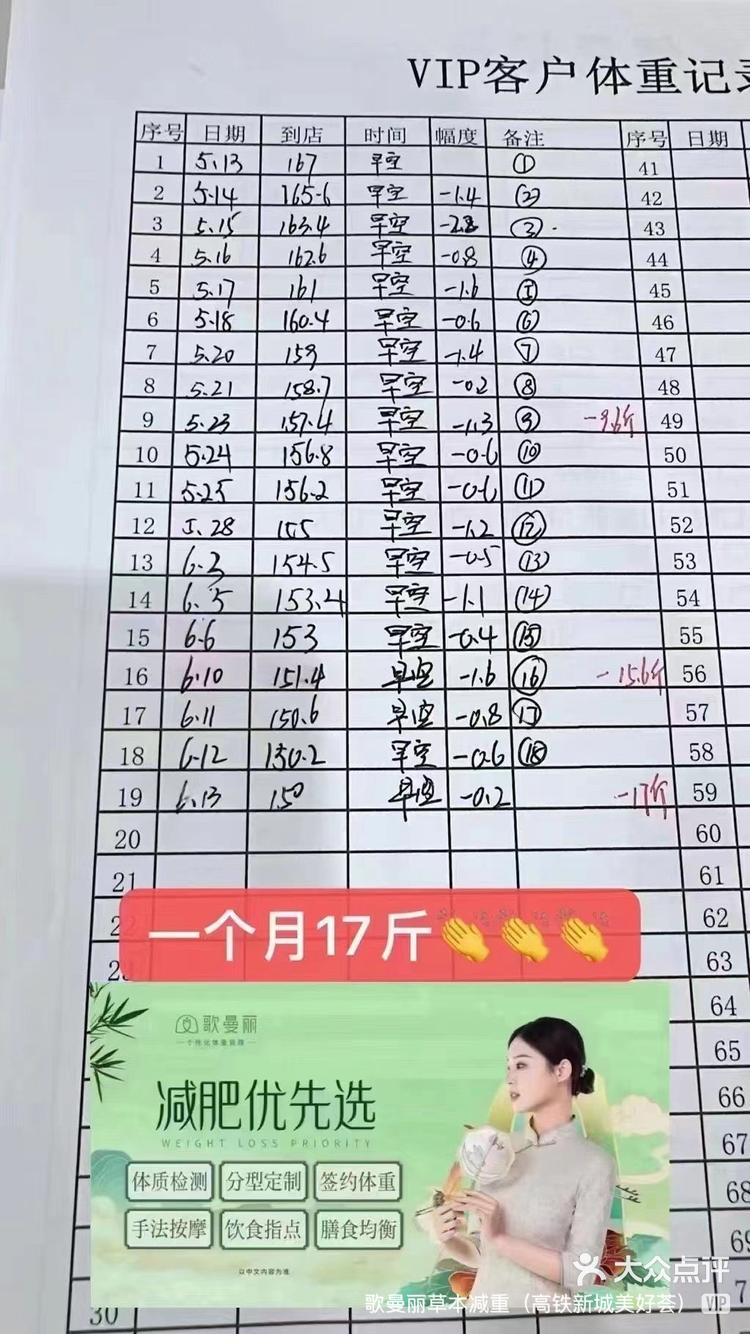 VIP客户体重记录
序号 日期 到店 时间 幅度 备注 序号 日期
1 5.13 167 早空 ① 41
2 5.14 165.6 早空 -1.4 ② 42
3 5.15 163.4 早空 ③ 43
4 5.16 162.6 早空 -0.8 ④ 44
5 5.17 161 早空 -1.6 ⑤ 45
6 5.18 160.4 早空 -0.6 ⑥ 46
7 5.20 159 早空 -1.4 ⑦ 47
8 5.21 158.7 早空 -0.2 ⑧ 48
9 5.23 157.4 早空 -1.3 ⑨ -9.6斤 49
10 5.24 156.8 早空 -0.6 ⑩ 50
11 5.25 156.2 早空 -0.6 ⑪ 51
12 5.28 155 早空 -1.2 ⑫ 52
13 6.3 154.5 早空 -0.5 ⑬ 53
14 6.5 153.4 早空 -1.1 ⑭ 54
15 6.6 153 早空 -0.4 ⑮ 55
16 6.10 151.4 早空 -1.6 ⑯ -15.6斤 56
17 6.11 150.6 早空 -0.8 ⑰ 57
18 6.12 150.2 早空 -0.6 ⑱ 58
19 6.13 150 早空 -0.2 -17斤 59
20 60
21 61
62
一个月17斤👏👏👏
63
64
歌曼丽
一个性化体重管理一
65
减肥优先选
WEIGHT LOSS PRIORITY
66
67
体质检测 分型定制 签约体重
68
手法按摩 饮食指点 膳食均衡
69
以中文内容为准
大众点评
30 歌曼丽草本减重（高铁新城美好荟） VIP